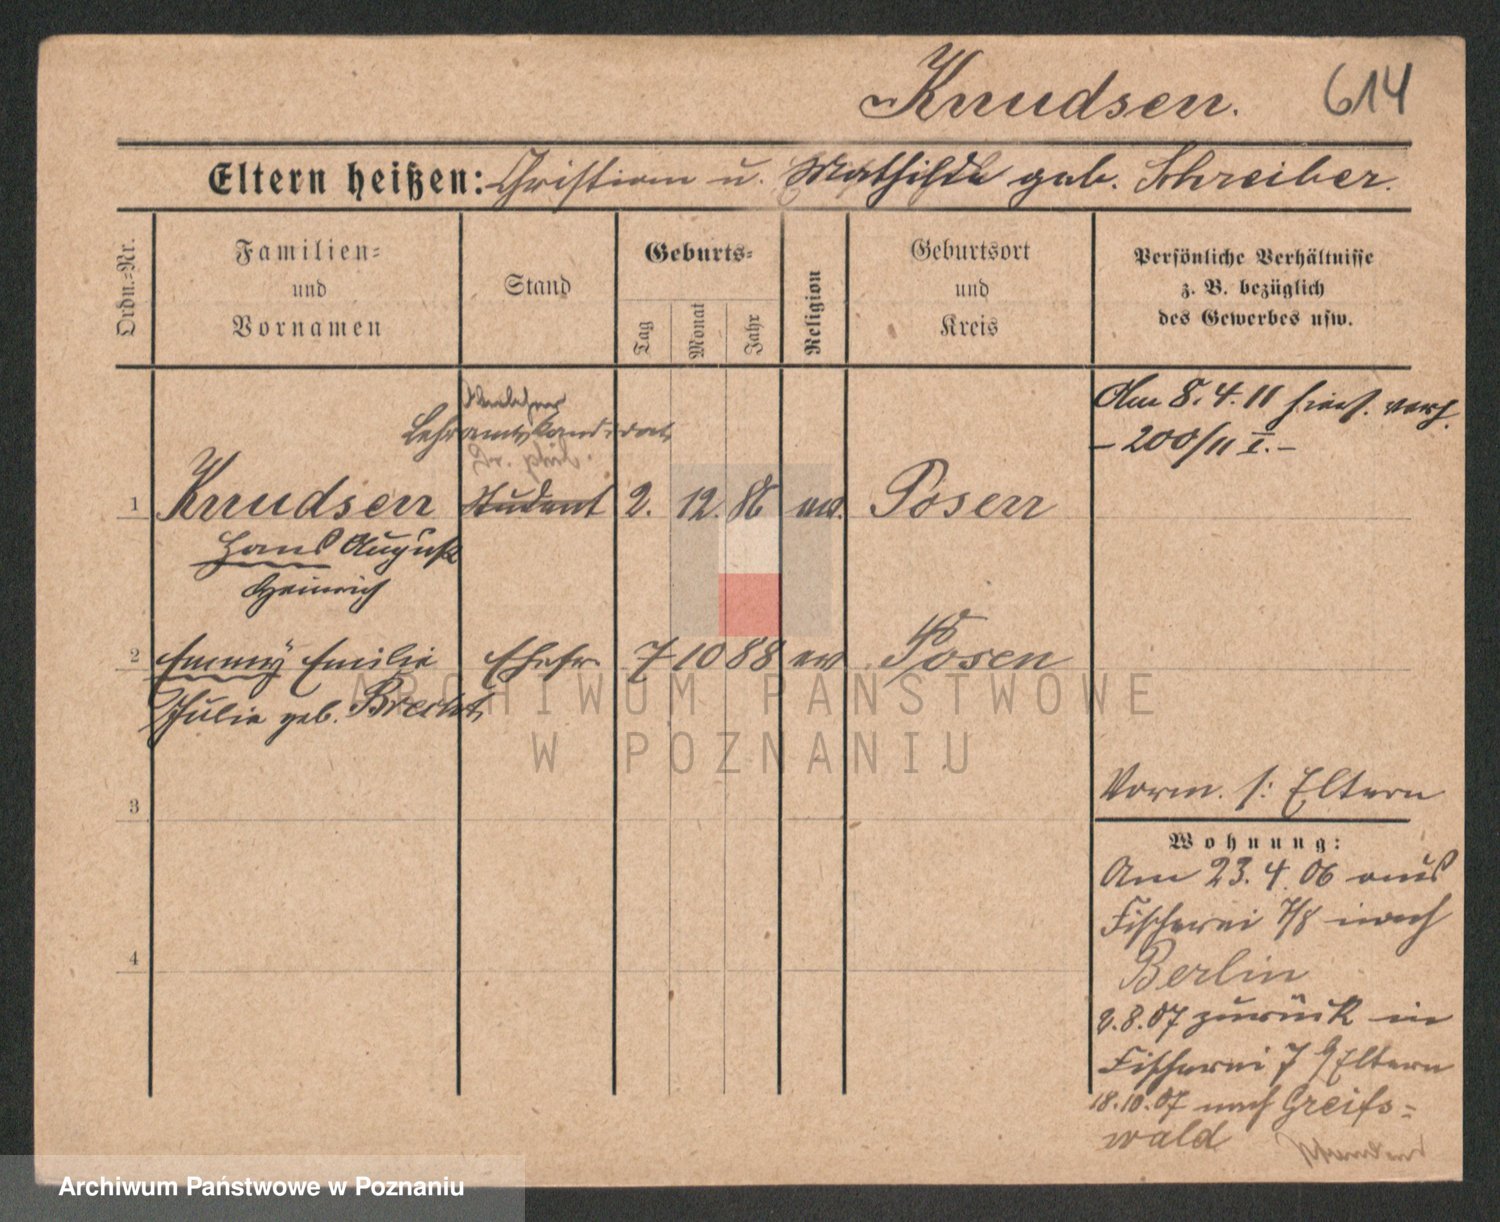 Knudsen. 614
Eltern heißen: Christian u. Mathilde geb. Schreiber.
Ordn.-Nr.
Familien-
und
Vornamen
Stand
Geburts-
Tag
Monat
Jahr
Religion
Geburtsort
und
Kreis
Persönliche Verhältnisse
z. B. bezüglich
des Gewerbes usw.
Am 8. 4. 11 hies. verh.
- 200/11 I. -
Lehramtskandidat
Dr. phil.
1 Knudsen Student 2. 12. 86 ev. Posen
Hans August
Heinrich
2 Emmy Emilie Ehefr. 7 10 88 ev Posen
Julie geb. Brecht
3
4
Vorm. s: Eltern
Wohnung:
Am 23. 4. 06 aus
Fischerei 7/8 nach
Berlin
2. 8. 07 zurück in
Fischerei 7 Eltern
18. 10. 07 nach Greifs-
wald
ARCHIWUM PAŃSTWOWE
W POZNANIU
Archiwum Państwowe w Poznaniu